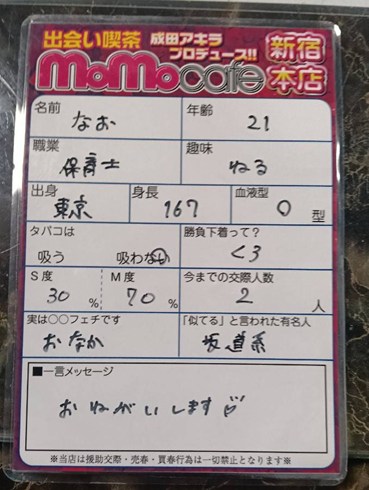 出会い喫茶 成田アキラ プロデュース!! 新宿
MoMocafe 本店
名前 なお 年齢 21
職業 保育士 趣味 ねる
出身 東京 身長 167 血液型 O 型
タバコは 吸う 吸わない 勝負下着って? く3
S度 30 % M度 70 % 今までの交際人数 2 人
実は○○フェチです おなか 「似てる」と言われた有名人 坂道系
■一言メッセージ
おねがいします
※当店は援助交際・売春・買春行為は一切禁止となります※